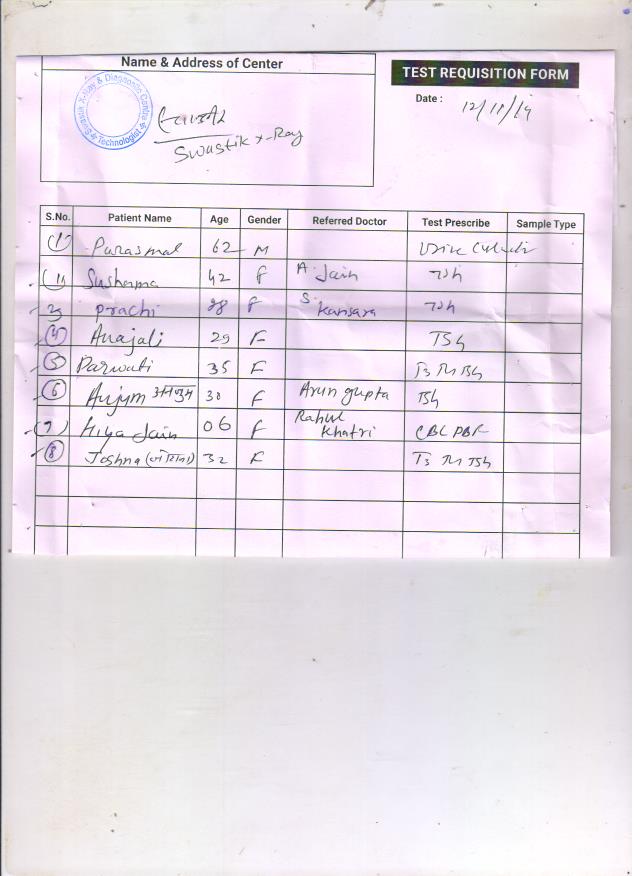 Name & Address of Center
TEST REQUISITION FORM
Swastik X-Ray & Diagnostic Centre
Technologist
Date : 12/11/19
Swastik X-Ray
S.No. Patient Name Age Gender Referred Doctor Test Prescribe Sample Type
(1) Parasmal 62 M Urine Culture
(11) Susharma 42 F A Jain TSh
3) Prachi 28 F S. Kansara TSh
(4) Anajali 29 F TSh
(5) Parwati 35 F T3 T4 TSh
(6) Anjum अनजुम 30 F Arun gupta TSh
(7) Hiya Jain 06 F Rahul Khatri CBC PBF
(8) Joshna 32 F T3 T4 TSh